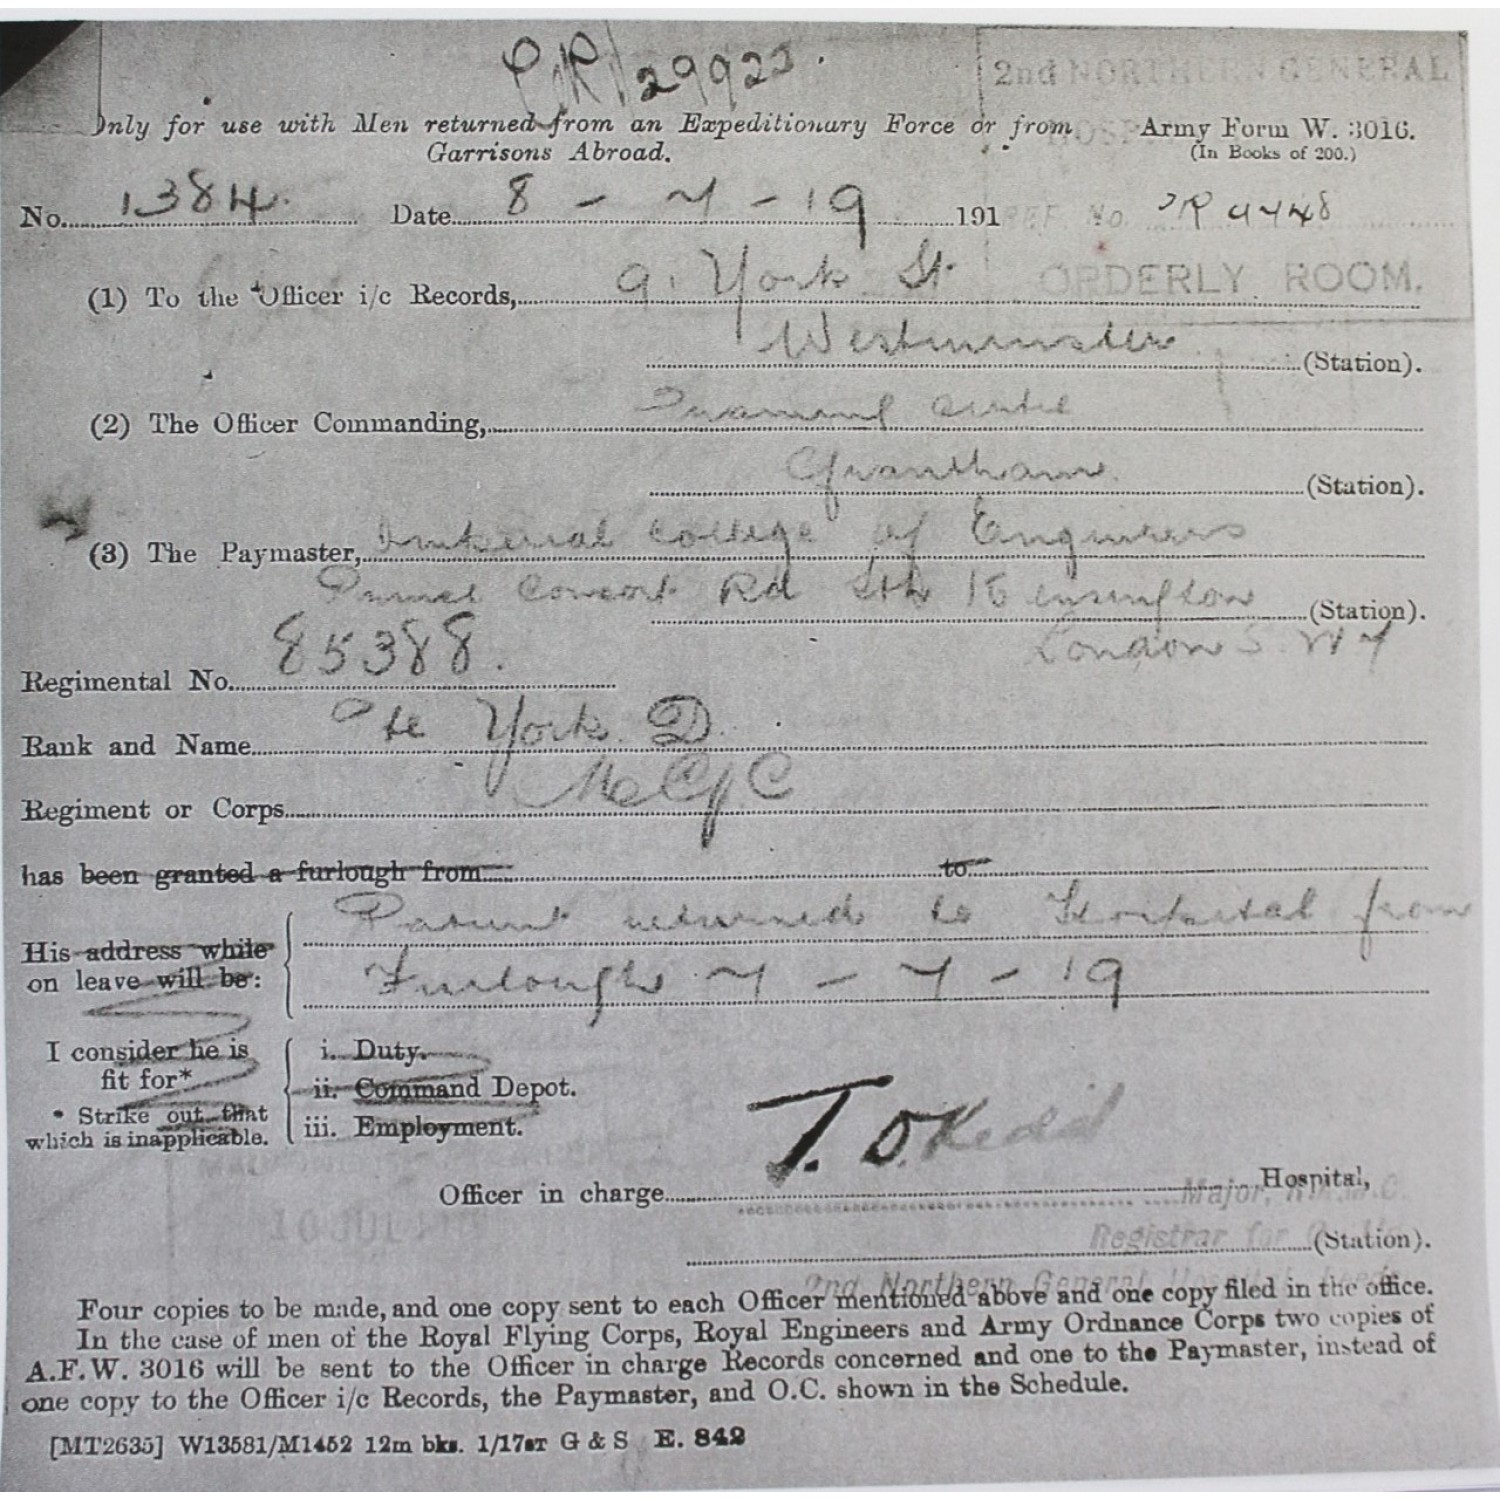 29923.
2nd NORTHERN GENERAL
Only for use with Men returned from an Expeditionary Force or from
Garrisons Abroad.
Army Form W. 3016.
(In Books of 200.)
No. 1384. Date 8 - 7 - 19 191 REF. No.
(1) To the *Officer i/c Records, 9. York St.
ORDERLY ROOM.
Westminster (Station).
(2) The Officer Commanding, Training Centre
Grantham. (Station).
(3) The Paymaster, Imperial College of Engineers
Prince Consort Rd Sth Kensington (Station).
London S. W 7
Regimental No. 85388.
Rank and Name Pte York. D.
Regiment or Corps M C G C
has been granted a furlough from to
His address while
on leave will be:
Patient returned to Hospital from
Furlough 7 - 7 - 19
I consider he is
fit for*
* Strike out that
which is inapplicable.
i. Duty.
ii. Command Depot.
iii. Employment.
Officer in charge T. O. Hospital,
Major, R.A.M.C.
Registrar for (Station).
2nd Northern General Hospital
Four copies to be made, and one copy sent to each Officer mentioned above and one copy filed in the office.
In the case of men of the Royal Flying Corps, Royal Engineers and Army Ordnance Corps two copies of
A.F.W. 3016 will be sent to the Officer in charge Records concerned and one to the Paymaster, instead of
one copy to the Officer i/c Records, the Paymaster, and O.C. shown in the Schedule.
[MT2635] W13581/M1452 12m bks. 1/17 G & S E. 842